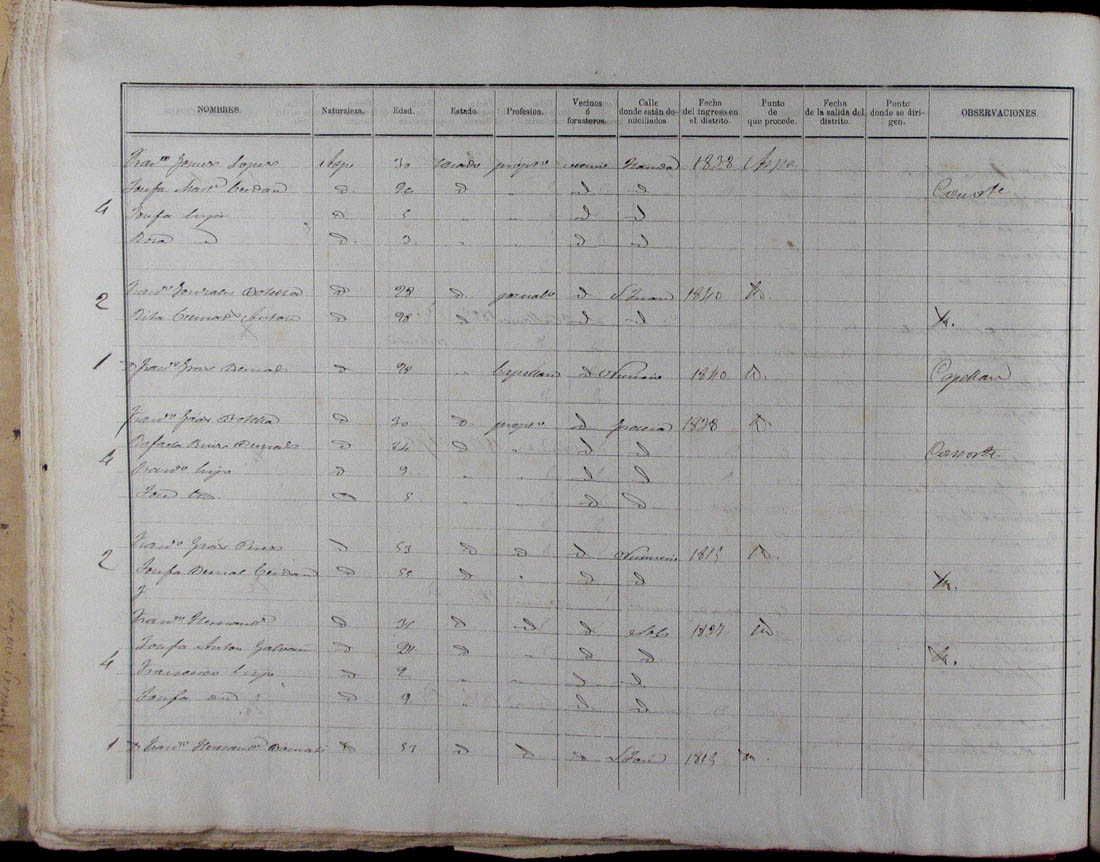 NOMBRES. Naturaleza. Edad. Estado. Profesion. Vecinos ó forasteros. Calle donde están domiciliados. Fecha del ingreso en el distrito. Punto de que procede. Fecha de la salida del distrito. Punto donde se dirigen. OBSERVACIONES.
Fran.co Gomez Lopez Aspe 30 Casado prop.o vecino 1838 Aspe
Josefa Mart.z Cerdan d 26 d d d Consorte
4 Josefa hija d 5 " " d d
Rosa d d. 3 " " d d
2 Fran.co Gonzales Botella d 28 d jornal.o d S Juan 1840 Yd.
Rita Cremad.s Anton d 28 d d d Yd.
1 D Fran.co Grás Bernal d 28 " Capellan d 1840 Yd. Capellan
Fran.co Grás Botella d 30 d prop.o d 1838 Yd.
Rafaela Bernal d 34 d " d d Consorte
4 Fran.co hijo d 2 " " d d
José d 5 " " d d
Fran.co Grás d 53 d d d 1815 Yd.
2 Josefa Bernal Cerdan d 55 d " d d Yd.
y
Fran.co Hernand.z d 31 d d d Sol 1827 Yd.
Josefa Anton Galvañ d 24 d d d Yd.
4 Francisco hijo d 2 " " d d
Josefa d 2 " d d
1 D Fran.co Hernand.z d 53 d d d S José 1815 Yd.